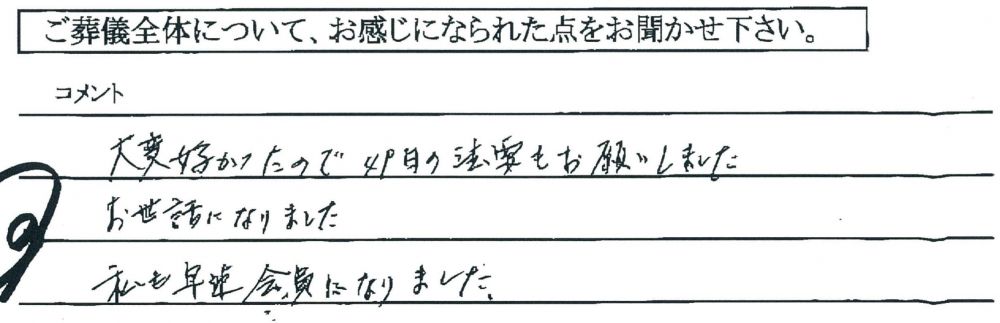 ご葬儀全体について、お感じになられた点をお聞かせ下さい。
コメント
大変好かったので 49日の法要もお願いしました
お世話になりました
私も早速会員になりました。